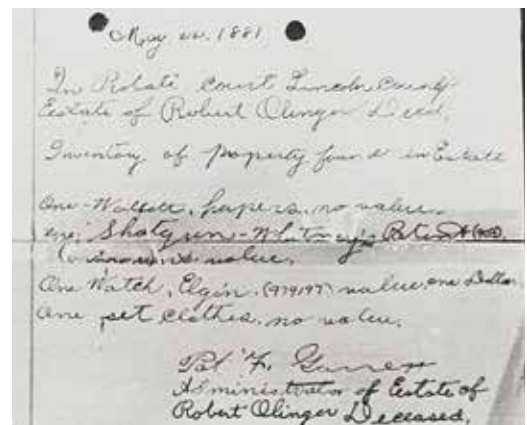 May, 1881
In Probate court Lincoln County
Estate of Robert Olinger Deced.
Inventory of property found in Estate
One-Wallett, papers, no value.
one, Shotgun-Whitney's Patent
value.
One Watch, Elgin, (979197) value, one Dollar.
One set clothes, no value.
Pat F. Garrett
Administrator of Estate of
Robert Olinger Deceased,